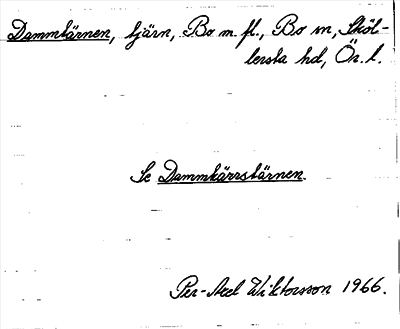 Dammtärnen, tjärn, Bo m. fl., Bo sn, Sköl-
lersta hd, Ör. l.
Se Dammkärrstärnen.
Per-Axel Wiktorsson 1966.